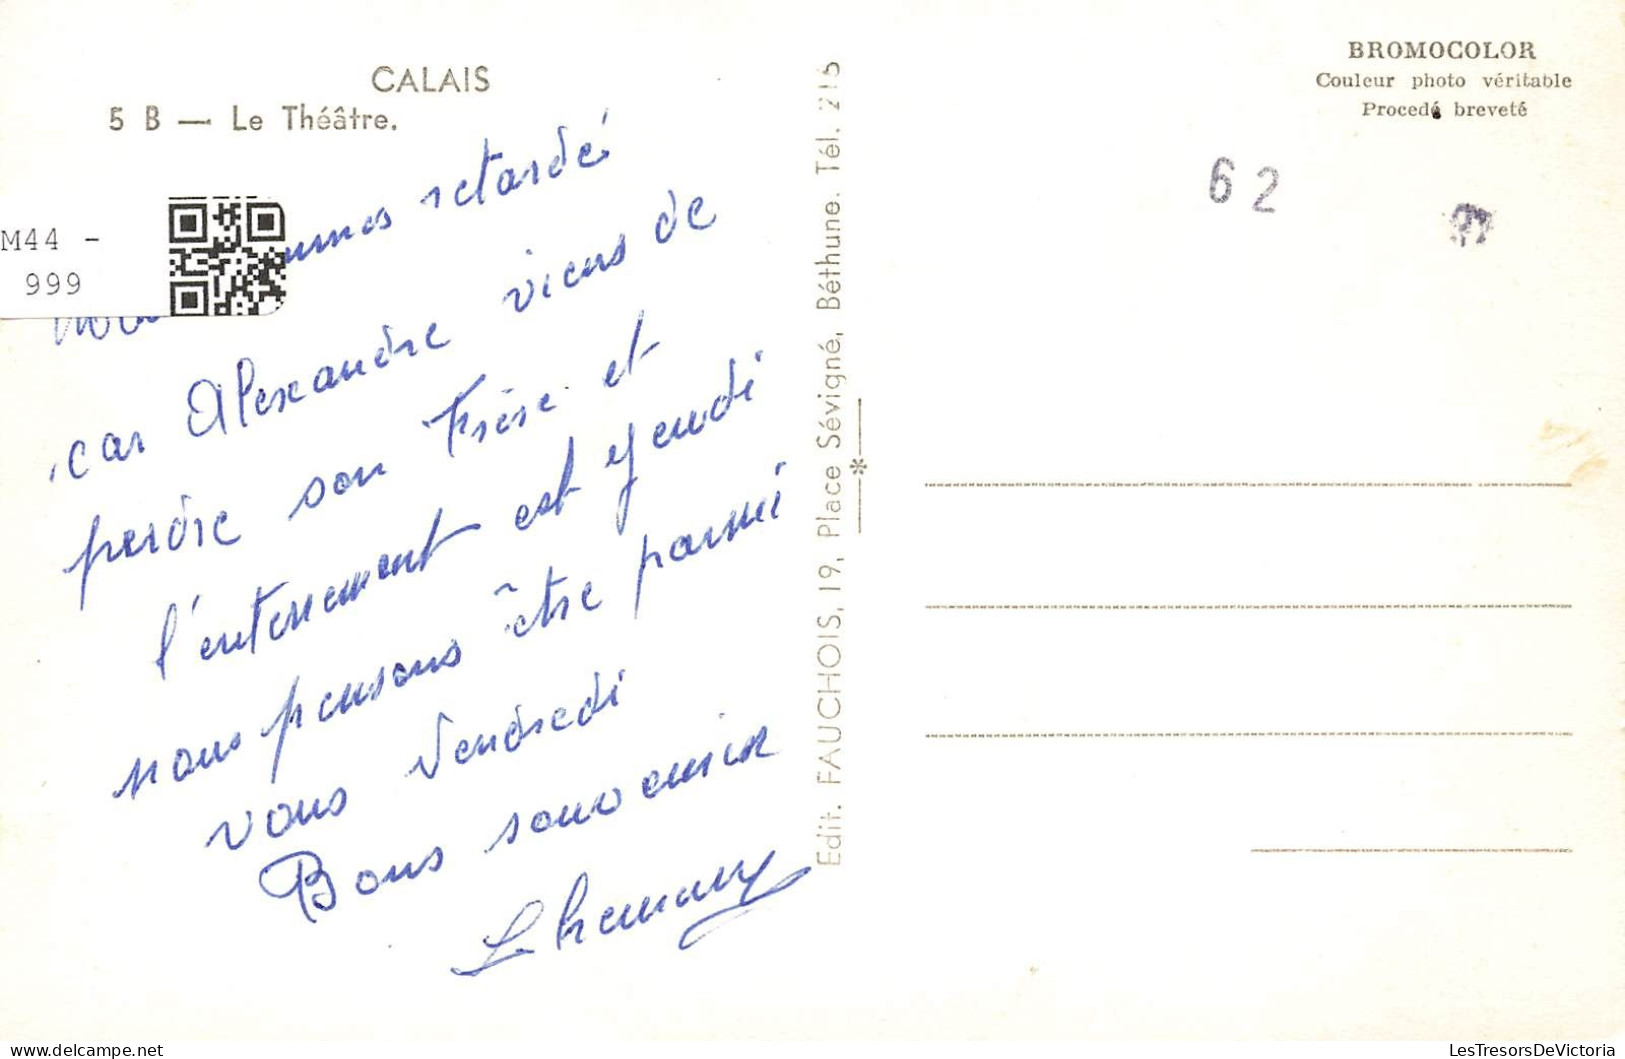 CALAIS
5 B — Le Théâtre.
M44 -
999
retardé
car Alexandre viens de
perdre son Frère et
l'enterrement est Jeudi
nous pensons être parmi
vous Vendredi
Bons souvenir
Edit. FAUCHOIS, 19, Place Sévigné, Béthune. Tél. 215
BROMOCOLOR
Couleur photo véritable
Procedé breveté
62
delcampe.net
LesTresorsDeVictoria